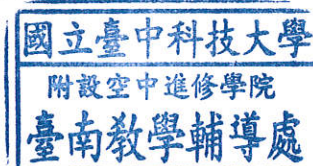 國立臺中科技大學
附設空中進修學院
臺南教學輔導處